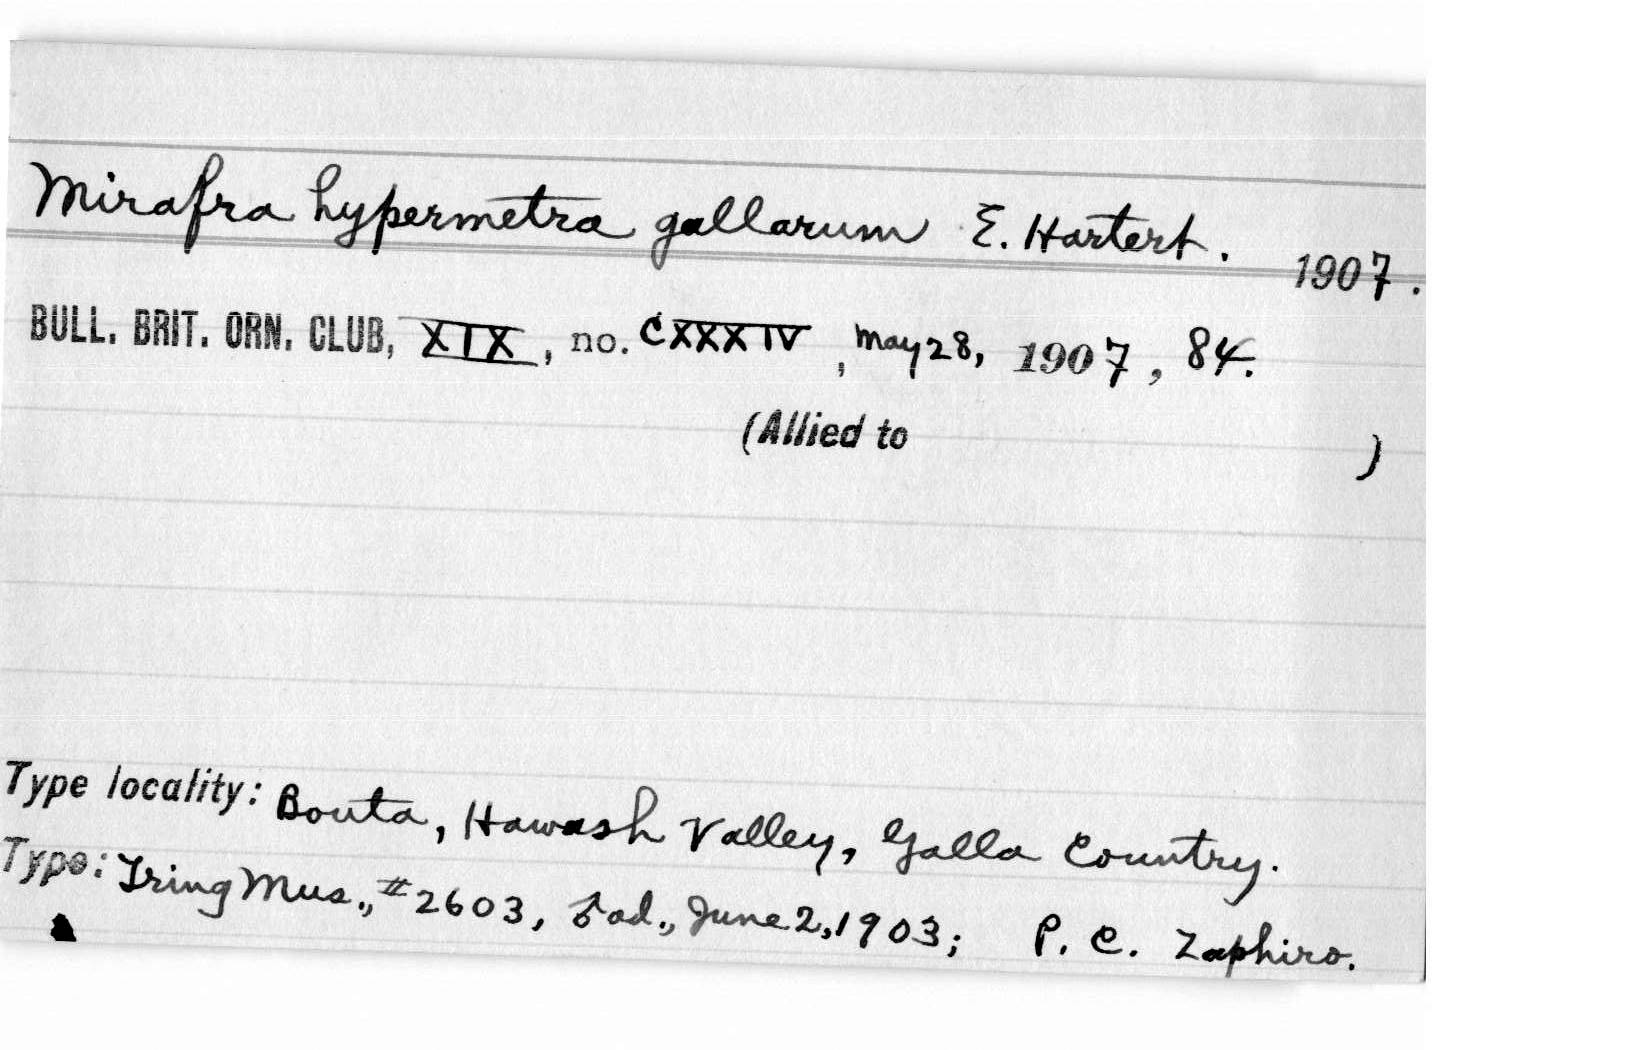 Mirafra hypermetra gallarum E. Hartert. 1907.
BULL. BRIT. ORN. CLUB, XIX, no. CXXXIV, May 28, 1907, 84.
(Allied to )
Type locality: Bouta, Hawash Valley, Galla Country.
Type: Tring Mus., #2603, ♂ ad., June 2, 1903; P. C. Zaphiro.